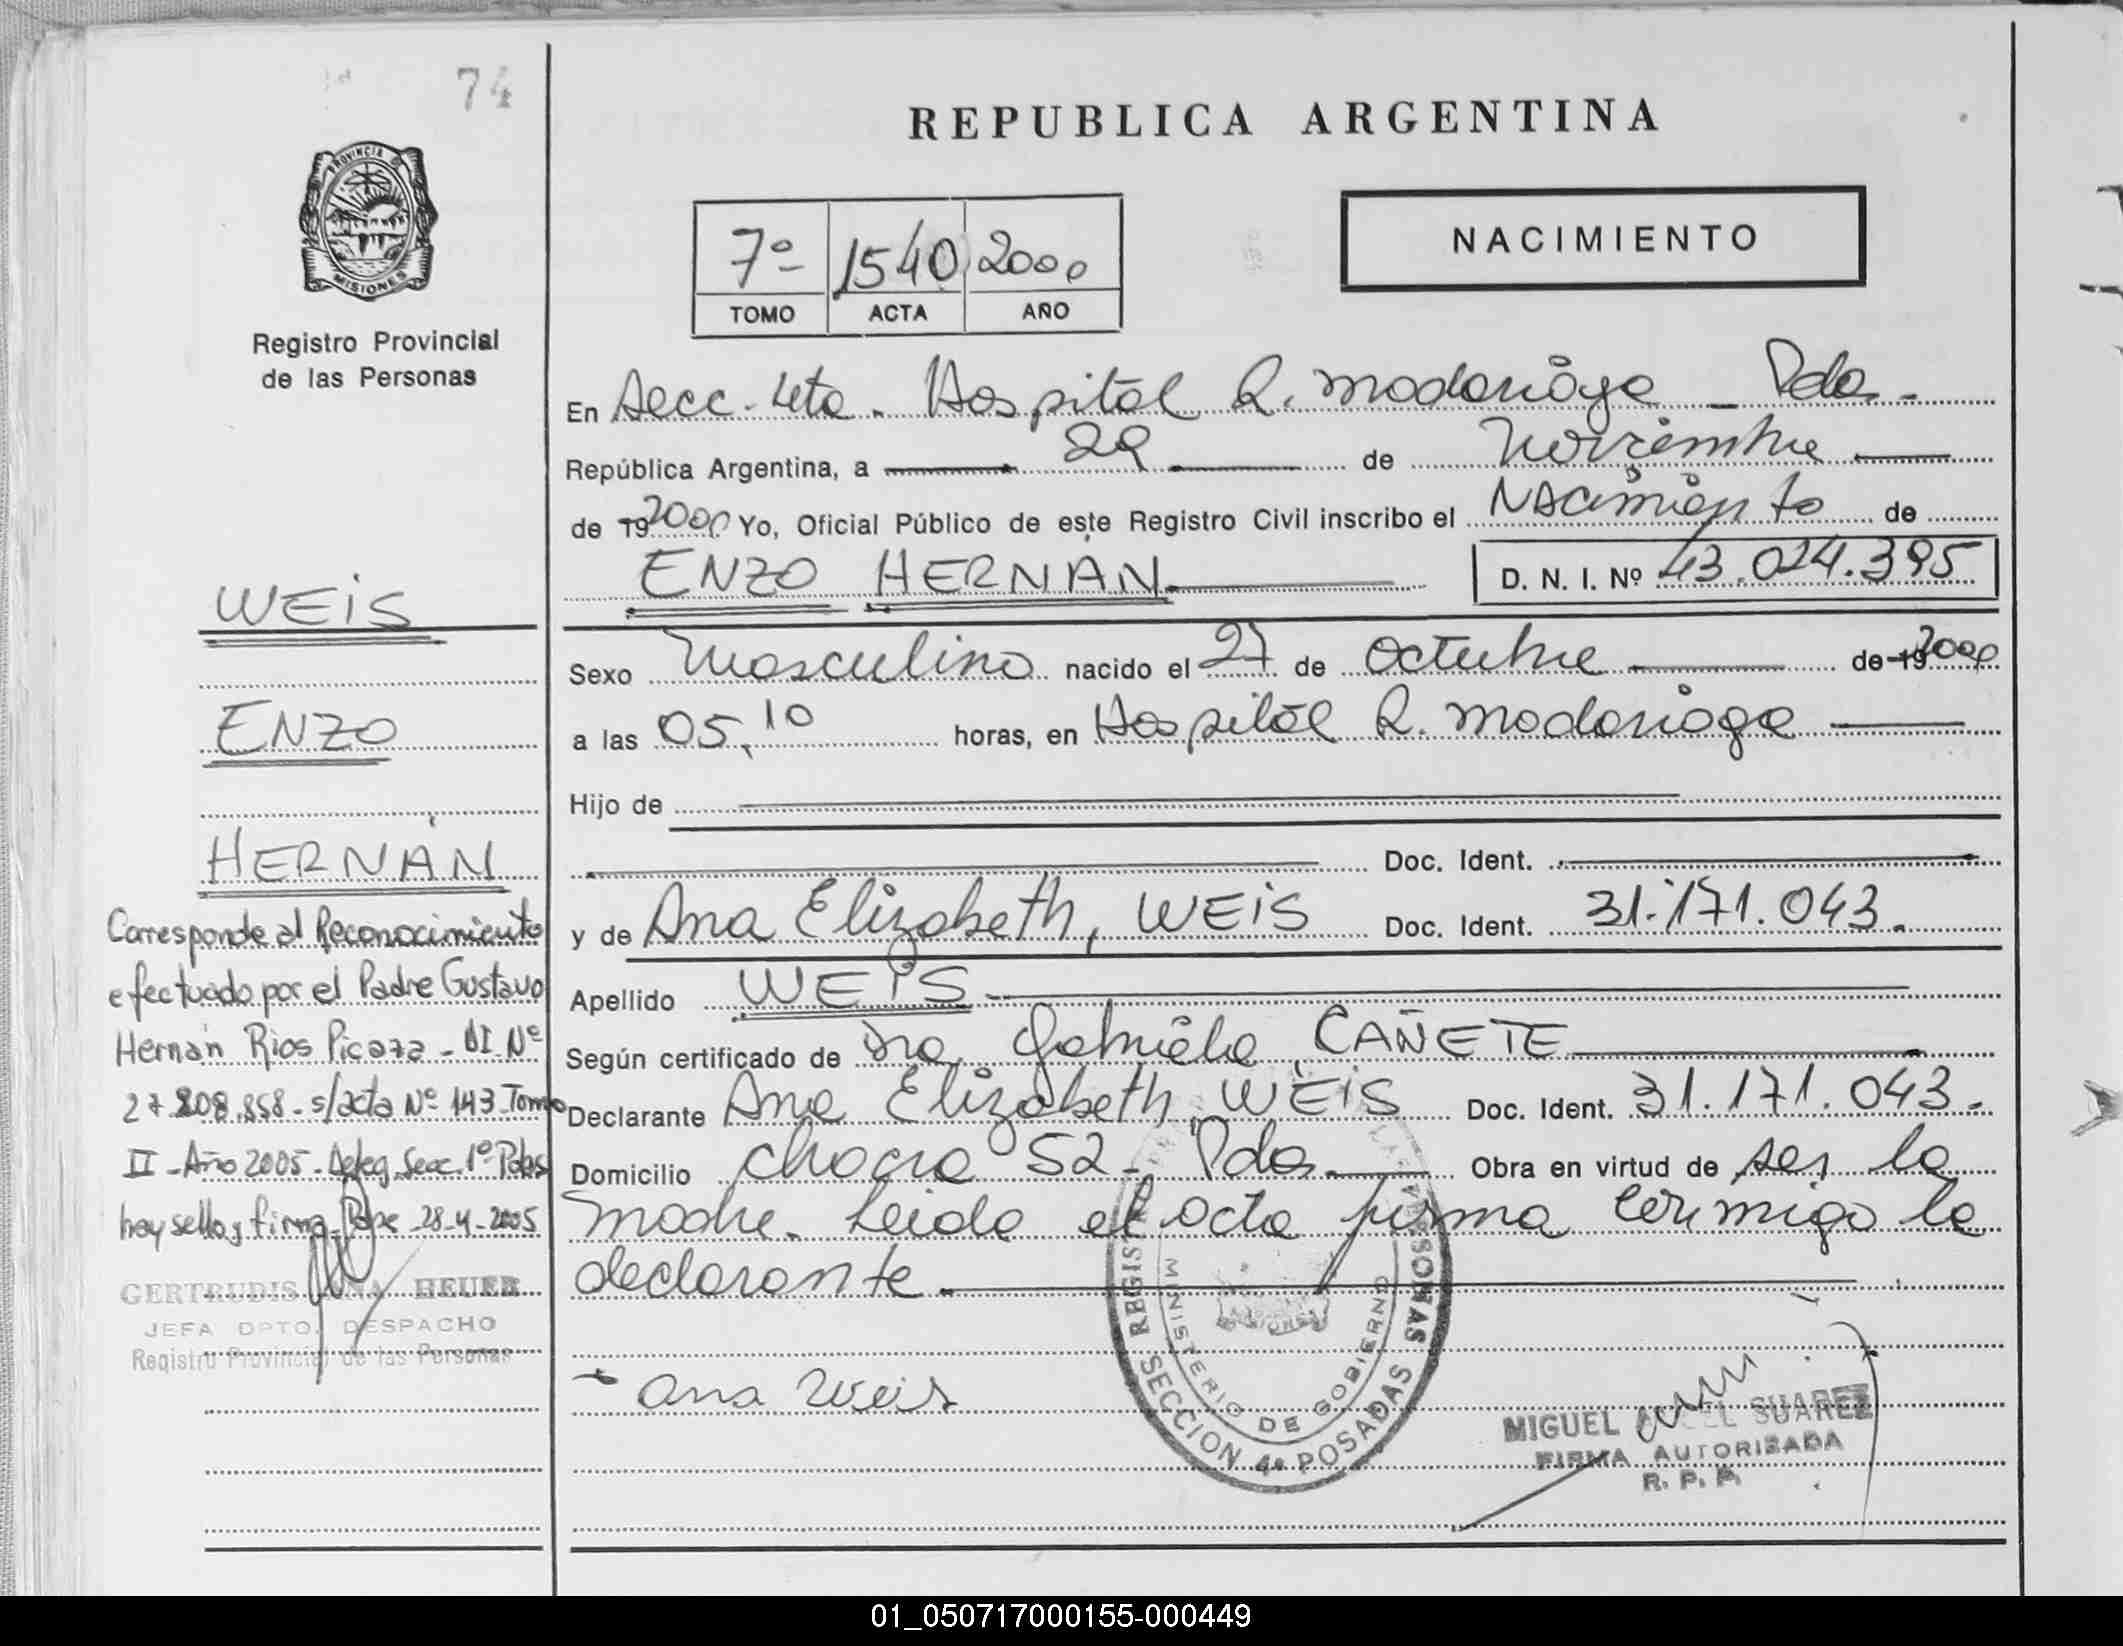 74
REPUBLICA ARGENTINA
PROVINCIA DE
MISIONES
Registro Provincial
de las Personas
7º 1540 2000
TOMO ACTA AÑO
NACIMIENTO
En Secc. 4ta. Hospital R. Madariaga - Pdas.
República Argentina, a 29 de Noviembre
de 19 2000 Yo, Oficial Público de este Registro Civil inscribo el Nacimiento de
ENZO HERNÁN D. N. I. Nº 43.024.395
Sexo Masculino nacido el 27 de Octubre de 19 2000
a las 05,10 horas, en Hospital R. Madariaga
Hijo de
Doc. Ident.
y de Ana Elizabeth, WEIS Doc. Ident. 31.171.043.
Apellido WEIS
Según certificado de Dra. Gabriela CAÑETE
Declarante Ana Elizabeth WEIS Doc. Ident. 31.171.043.
Domicilio chacra 52 - Pdas. Obra en virtud de ser la
madre. Leida el acta firma conmigo la
declarante
Ana Weis
WEIS
ENZO
HERNÁN
Corresponde al Reconocimiento
efectuado por el Padre Gustavo
Hernán Rios Picaza - DI Nº
27.808.858 - s/acta Nº 143 Tomo
II - Año 2005 - Deleg. Secc. 1º Pdas
hay sello y firma - 28-4-2005
GERTRUDIS HEUER
JEFA DPTO. DESPACHO
Registro Provincial de las Personas
MINISTERIO DE GOBIERNO
SECCION 4ª POSADAS
MIGUEL ANGEL SUAREZ
FIRMA AUTORIZADA
R. P. P.
01_050717000155-000449